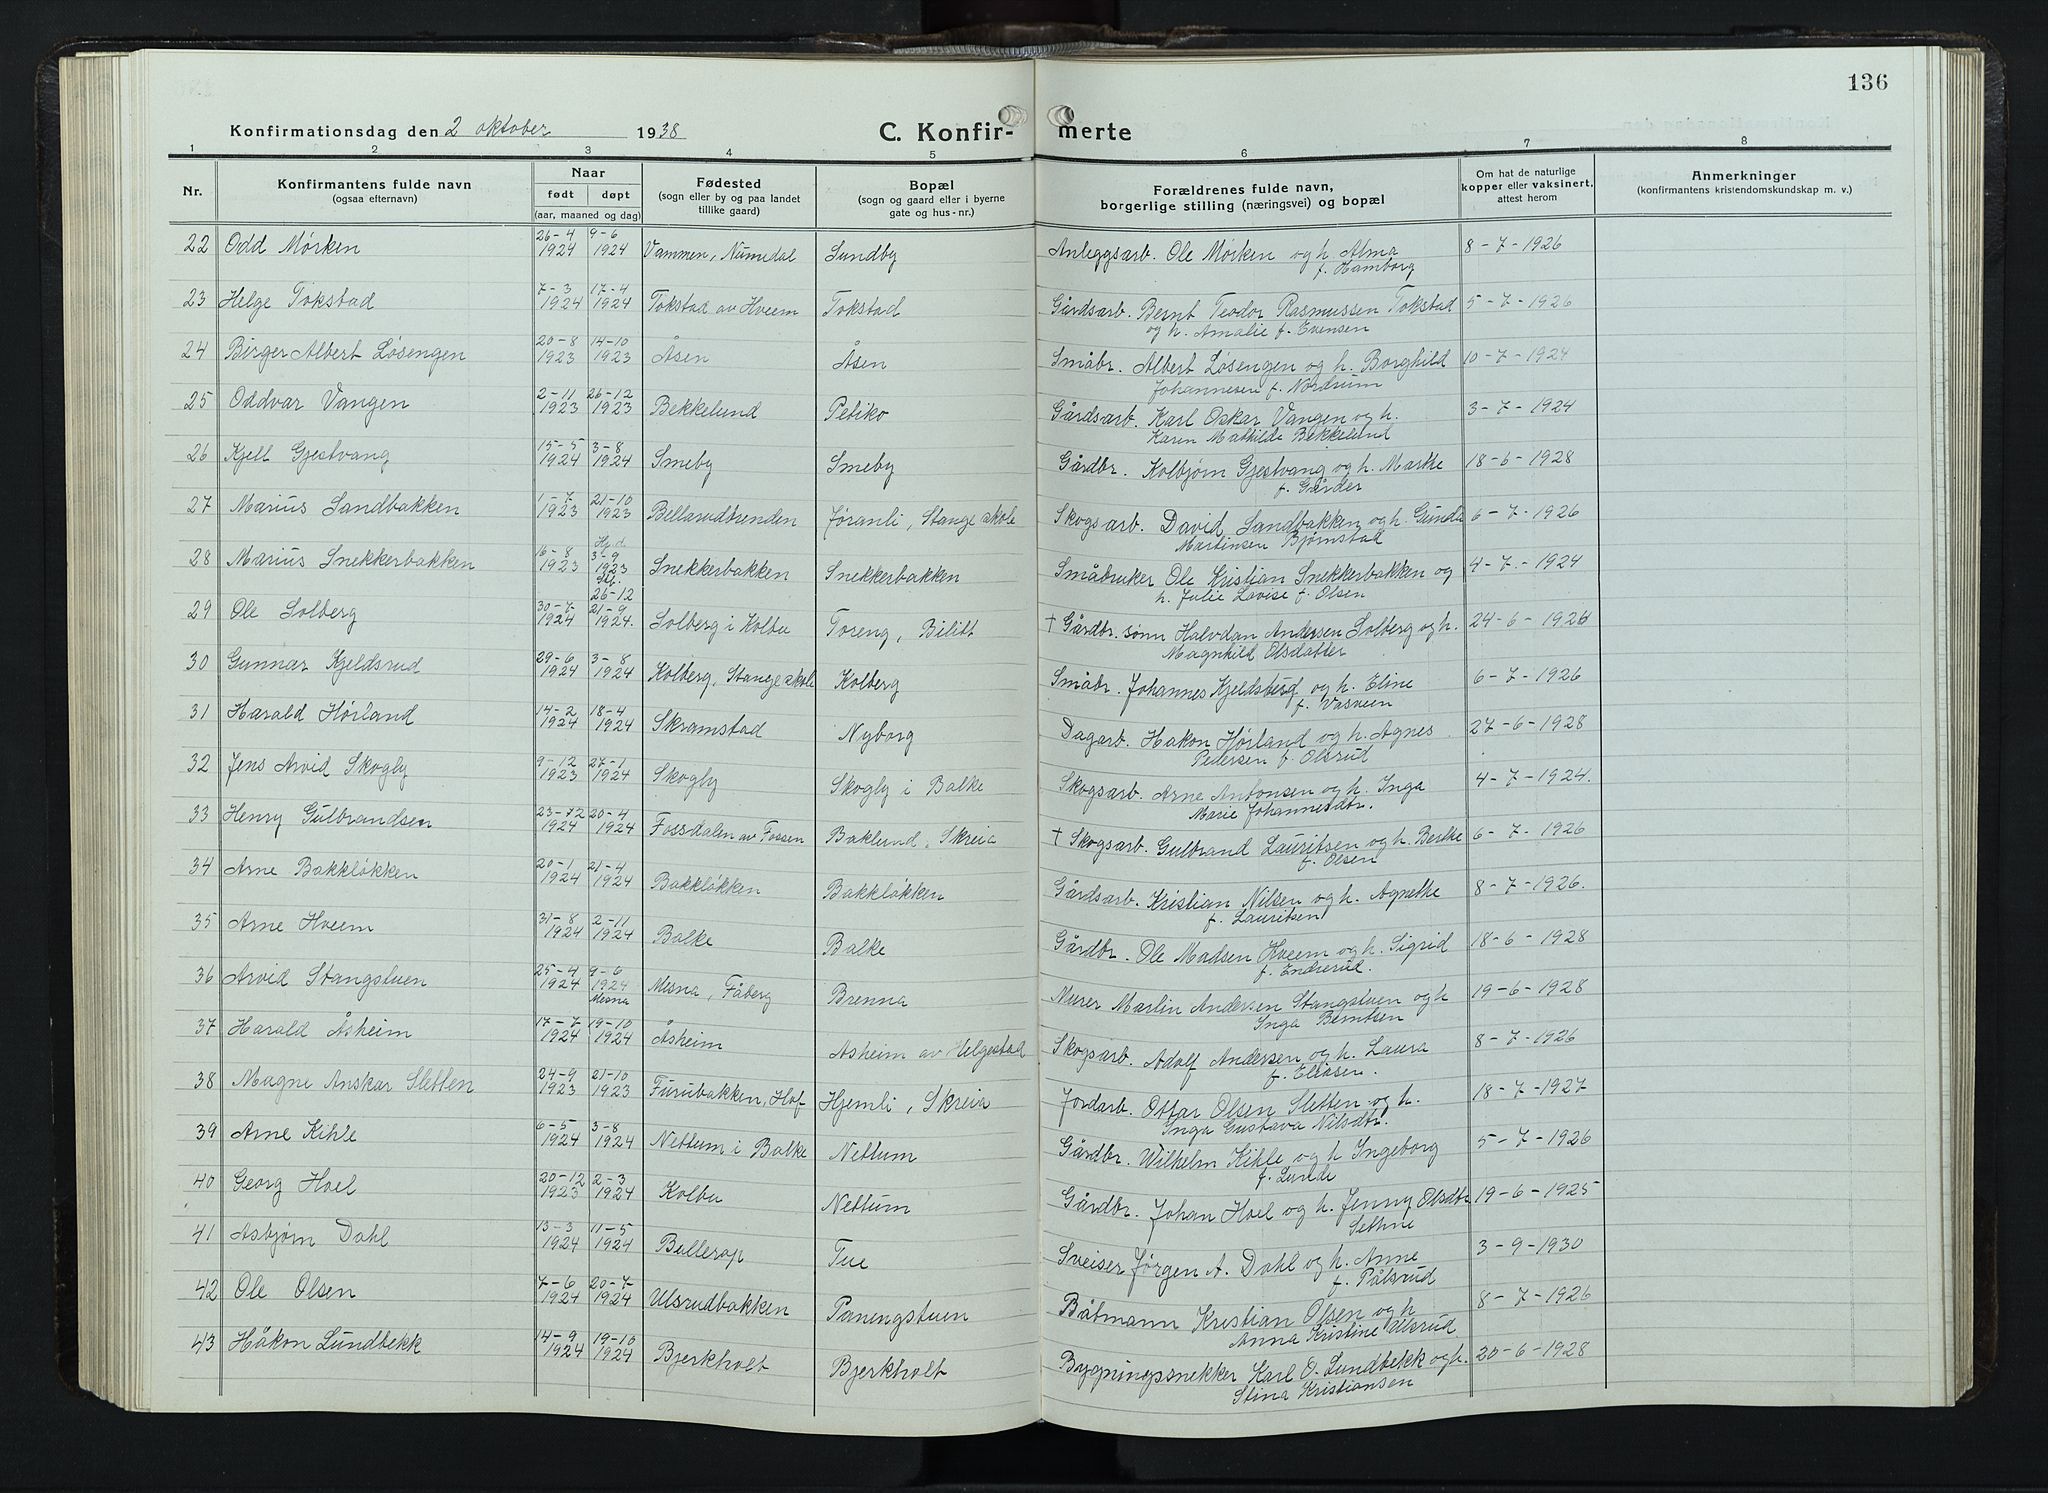 136
Konfirmationsdag den 2 oktober 1938 C. Konfirmerte
1 2 3 4 5 6 7 8
Nr. Konfirmantens fulde navn (ogsaa efternavn) Naar født døpt (aar, maaned og dag) Fødested (sogn eller by og paa landet tillike gaard) Bopæl (sogn og gaard eller i byerne gate og hus-nr.) Forældrenes fulde navn, borgerlige stilling (næringsvei) og bopæl Om hat de naturlige kopper eller vaksinert, attest herom Anmerkninger (konfirmantens kristendomskundskap m. v.)
22 Odd Mørken 26-4 1924 9-6 1924 Vammen, Numedal Sundby Anleggsarb. Ole Mørken og h. Alma f. Hamborg 8-7-1926
23 Helge Tokstad 7-3 1924 17-4 1924 Tokstad av Hveem Tokstad Gårdsarb. Bernt Teodor Rasmussen Tokstad og h. Amalie f. Evensen 5-7-1926
24 Birger Albert Løsengen 20-8 1923 14-10 1923 Åsen Åsen Småbr. Albert Løsengen og h. Borghild Johannesen f. Nordrum 10-7-1924
25 Oddvar Vangen 2-11 1923 26-12 1923 Bekkelund Petiko Gårdsarb. Karl Oskar Vangen og h. Karen Mathilde Bekkelund 3-7-1924
26 Kjell Gjestvang 15-5 1924 3-8 1924 Smeby Smeby Gårdbr. Kolbjørn Gjestvang og h. Marthe f. Gårder 18-6-1928
27 Marius Sandbakken 1-7 1923 21-10 1923 Billerudbrenden Jøranli, Stange skole Skogsarb. David Sandbakken og h. Gunda Martinsen Bjørnstad 6-7-1926
28 Marius Snekkerbakken 16-8 1923 Hj.d. 3-9 1923 Stf. 26-12 Snekkerbakken Snekkerbakken Småbruker Ole Kristian Snekkerbakken og h. Julie Lovise f. Olsen 4-7-1924
29 Ole Solberg 30-7 1924 21-9 1924. Solberg i Kolbu Toreng, Bilitt † Gårdbr. sønn Halvdan Andersen Solberg og h. Magnhild Olsdatter 24-6-1926
30 Gunnar Kjeldsrud 29-6 1924 3-8 1924 Kolberg, Stange skole Kolberg Småbr. Johannes Kjeldsrud og h. Eline f. Vasveen 6-7-1926
31 Harald Hørland 14-2 1924 18-4 1924 Skramstad Nyborg Dagarb. Hakon Hørland og h. Agnes Pedersen f. Olsrud 27-6-1928
32 Jens Arvid Skogly 9-12 1923 27-1 1924 Skogly Skogly i Balke Skogsarb. Arne Antonsen og h. Inga Marie Johannesdtr. 4-7-1924.
33 Henry Gulbrandsen 23-12 1924 20-4 1924 Fossdalen av Fossen Baklund, Skreia † Skogsarb. Gulbrand Lauritsen og h. Berthe f. Olsen 6-7-1926
34 Arne Bakkløkken 20-1 1924 21-4 1924 Bakkløkken Bakkløkken Gårdsarb. Kristian Nilsen og h. Agnethe f. Lauritsen 8-7-1926.
35 Arne Hveem 31-8 1924 2-11 1924 Balke Balke Gårdbr. Ole Madsen Hveem og h. Sigrid f. Endrerud. 18-6-1928
36 Arvid Stangstuen 25-4 1924 9-6 1924 Mesna Mesna, Fåberg Brenna Murer Martin Andersen Stangstuen og h Inga Berntsen 19-6-1928
37 Harald Åsheim 17-7 1924 19-10 1924 Åsheim Åsheim av Helgestad Skogsarb. Adolf Andersen og h. Laura f. Eliasen. 8-7-1926
38 Magne Anskar Sletten 24-9 1923 21-10 1923 Furubakken, Hof Hjemli, Skreia Jordarb. Ottar Olsen Sletten og h. Inga Gustava Nilsdtr. 18-7-1927
39 Arne Kihle 6-5 1924 3-8 1924 Nettum i Balke Nettum Gårdbr. Wilhelm Kihle og h Ingeborg f. Lunde 5-7-1926
40 Georg Hoel 20-12 1923 2-3 1924 Kolbu Nettum Gårdbr. Johan Hoel og h. Jenny Olsdtr Sethne 19-6-1925
41 Asbjørn Dahl 13-3 1924 11-5 1924 Ballerop Tue Sveiser Jørgen A. Dahl og h. Anne f. Pålsrud 3-9-1930
42 Ole Olsen 7-6 1924 20-7 1924 Ulsrudbakken Paningstuen Båtmann Kristian Olsen og h Anna Kristine Ulsrud 8-7-1926
43 Håkon Lundbekk 14-9 1924 19-10 1924 Bjerkholt Bjerkholt Bygningssnekker Karl O. Lundbekk og h. Stina Kristiansen 20-6-1928